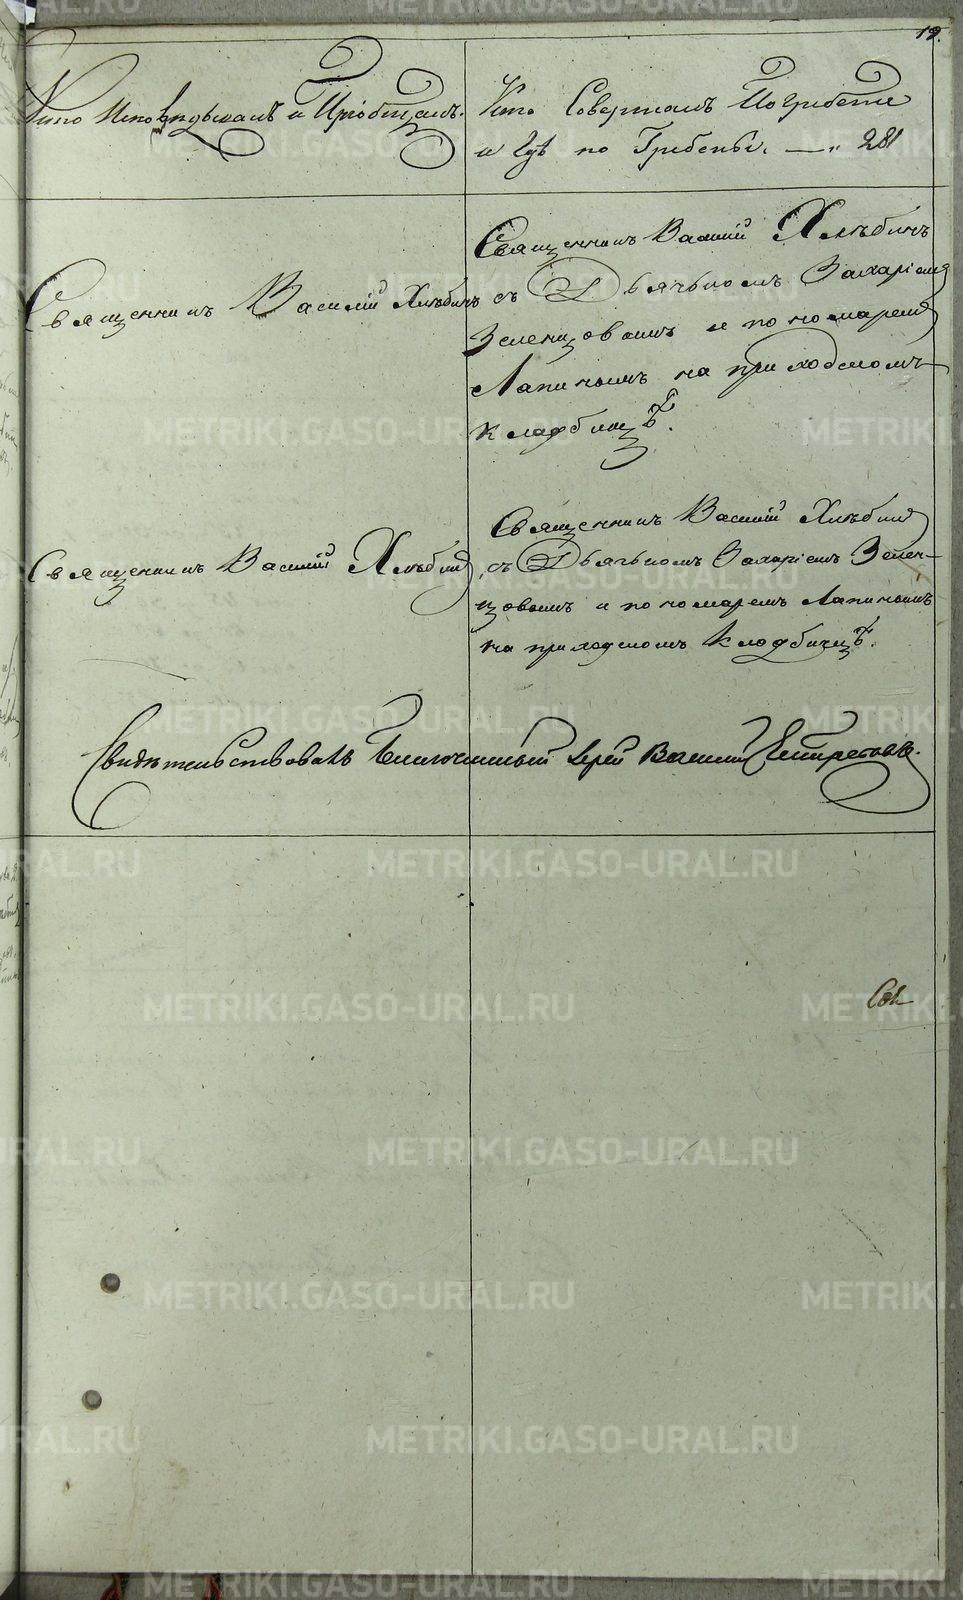 19.
Кто Исповѣдывалъ и Приобщалъ.
Кто Совершалъ Погребенiе
и Гдѣ по Гребены. — „ 281
Священникъ Василiй Хлѣбинъ
Священникъ Василiй Хлѣбинъ
съ Дьячькомъ Захарiемъ
Зеленцовымъ и пономаремъ
Лапинымъ на приходскомъ
кладбищѣ.
Священникъ Василiй Хлѣбинъ
Священникъ Василiй Хлѣбинъ
съ Дьячькомъ Захарiемъ Зелен-
цовымъ и пономаремъ Лапинымъ
на приходскомъ Кладбищѣ.
Свидѣтельствовалъ Благочинный Iерей Василiй
METRIKI.GASO-URAL.RU